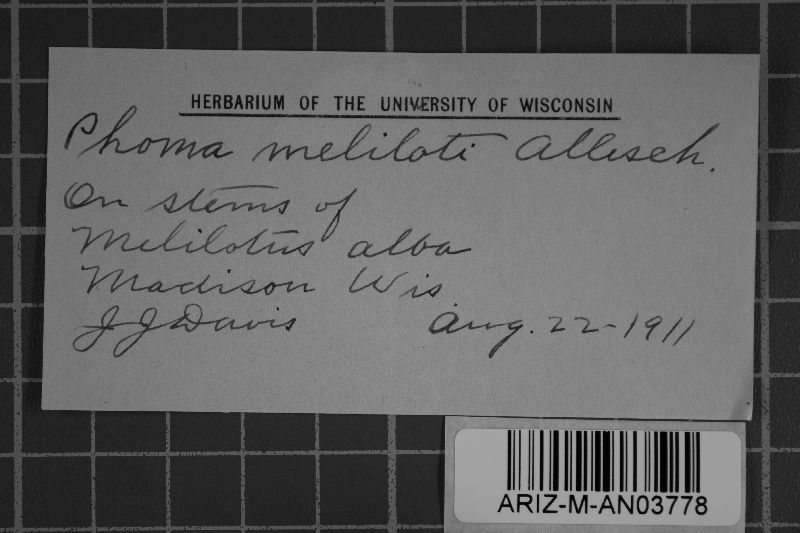 HERBARIUM OF THE UNIVERSITY OF WISCONSIN
Phoma meliloti Allesch.
On stems of
Melilotus alba
Madison Wis
J J Davis Aug. 22-1911
ARIZ-M-AN03778